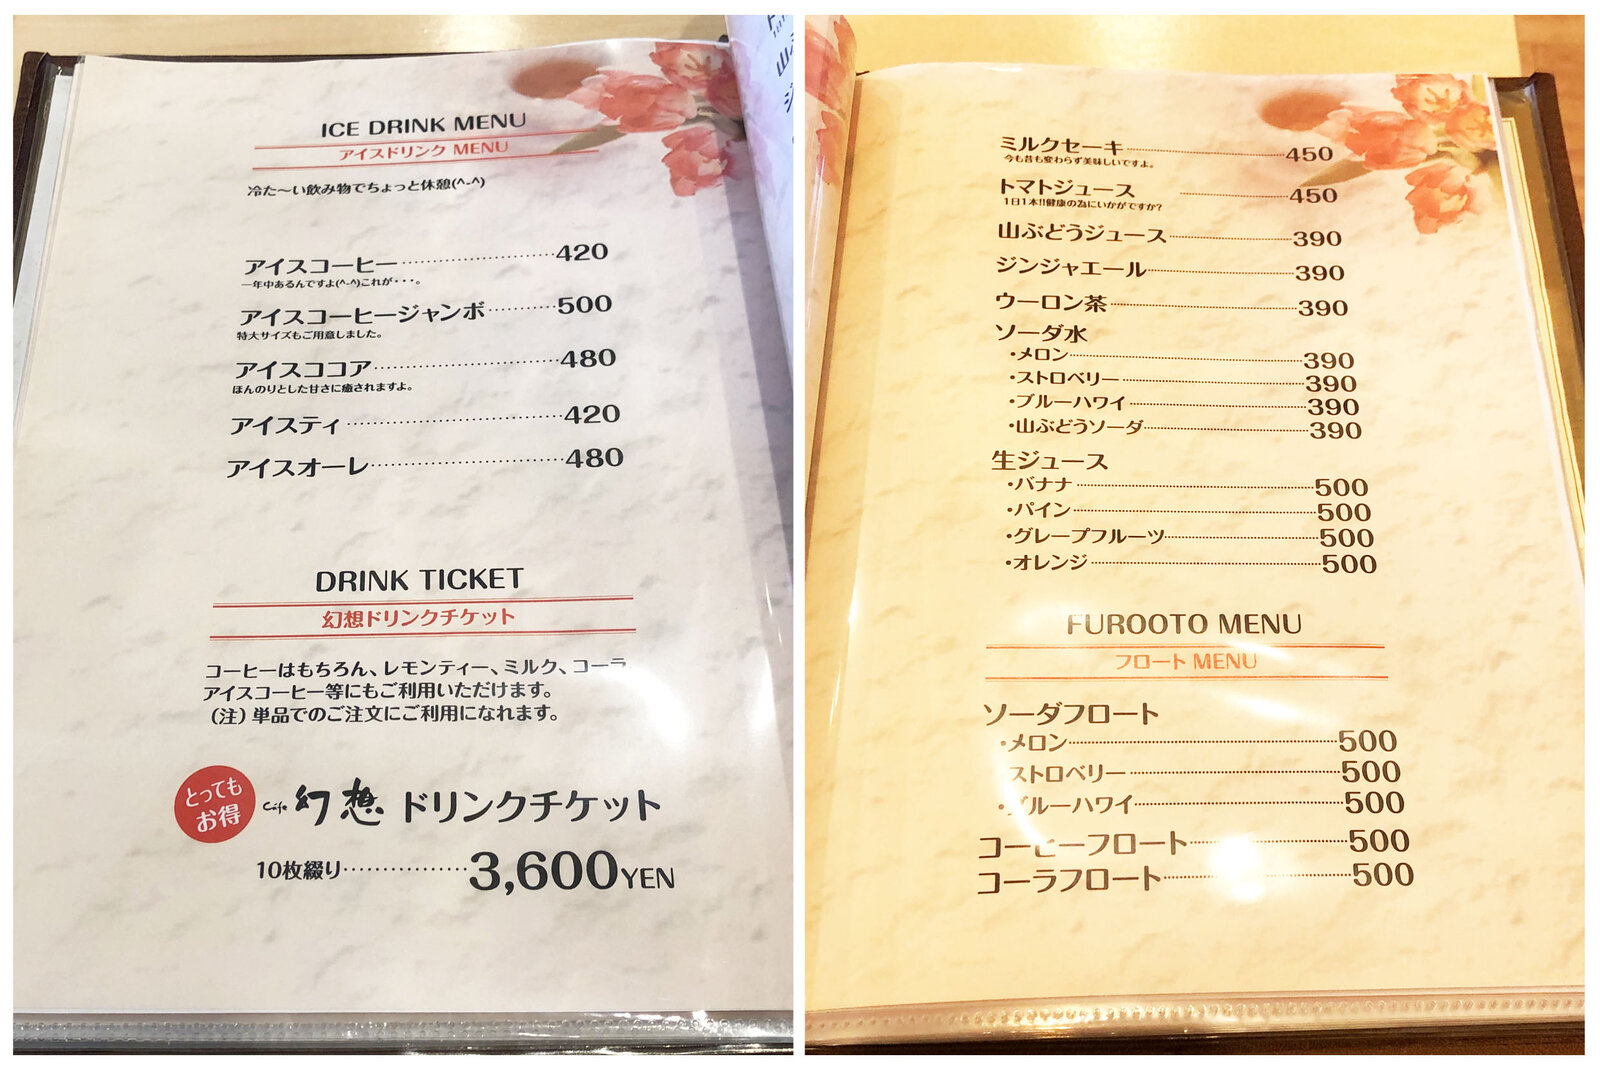 ICE DRINK MENU
アイスドリンク MENU
冷た〜い飲み物でちょっと休憩(^-^)
アイスコーヒー 420
一年中あるんですよ(^-^)これが・・・。
アイスコーヒージャンボ 500
特大サイズもご用意しました。
アイスココア 480
ほんのりとした甘さに癒されますよ。
アイスティ 420
アイスオーレ 480
DRINK TICKET
幻想ドリンクチケット
コーヒーはもちろん、レモンティー、ミルク、コーラ
アイスコーヒー等にもご利用いただけます。
（注）単品でのご注文にご利用になれます。
とっても
お得
Cafe 幻想 ドリンクチケット
10枚綴り 3,600YEN
ミルクセーキ 450
今も昔も変わらず美味しいですよ。
トマトジュース 450
1日1本!!健康の為にいかがですか?
山ぶどうジュース 390
ジンジャエール 390
ウーロン茶 390
ソーダ水
・メロン 390
・ストロベリー 390
・ブルーハワイ 390
・山ぶどうソーダ 390
生ジュース
・バナナ 500
・パイン 500
・グレープフルーツ 500
・オレンジ 500
FUROOTO MENU
フロート MENU
ソーダフロート
・メロン 500
ストロベリー 500
・ブルーハワイ 500
コーヒーフロート 500
コーラフロート 500